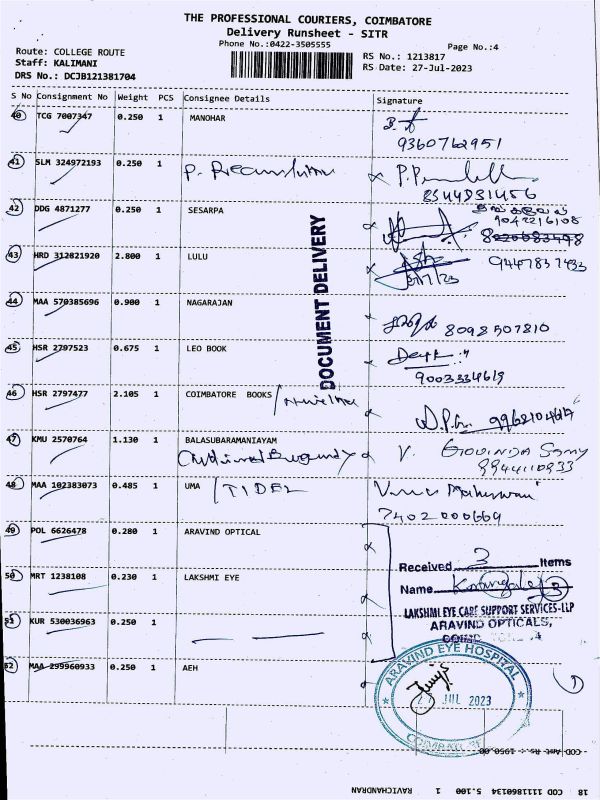 THE PROFESSIONAL COURIERS, COIMBATORE
Delivery Runsheet - SITR
Phone No.:0422-3505555
Page No.:4
Route: COLLEGE ROUTE
Staff: KALIMANI
DRS No.: DCJB121381704
RS No.: 1213817
RS Date: 27-Jul-2023
S No Consignment No Weight PCS Consignee Details Signature
40 TCG 7007347 0.250 1 MANOHAR
9360762951
41 SLM 324972193 0.250 1
8544931456
42 DDG 4871277 0.250 1 SESARPA
9042216108
43 HRD 312821920 2.800 1 LULU 9447837433
44 MAA 570385696 0.900 1 NAGARAJAN
8098507810
45 HSR 2797523 0.675 1 LEO BOOK
9003334619
46 HSR 2797477 2.105 1 COIMBATORE BOOKS
47 KMU 2570764 1.130 1 BALASUBARAMANIAYAM
V. GOVINDA SAMY
9944110933
48 MAA 102383073 0.485 1 UMA / TIDEL
7402000669
49 POL 6626478 0.280 1 ARAVIND OPTICAL
50 MRT 1238108 0.230 1 LAKSHMI EYE
51 KUR 530036963 0.250 1
52 MAA 299960933 0.250 1 AEH
DOCUMENT DELIVERY
Received 3 Items
Name
LAKSHMI EYE CARE SUPPORT SERVICES-LLP
ARAVIND OPTICALS,
ARAVIND EYE HOSPITAL
27 JUL 2023
COIMBATORE
COD Amt Rs.: 1950.00
18 COD 1111860134 5.100 1 RAVICHANDRAN